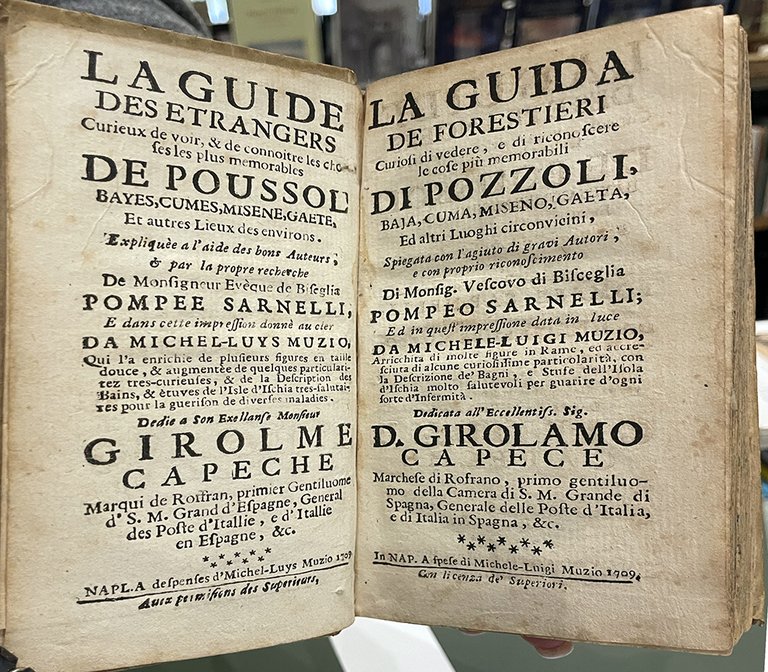 LA GUIDE
DES ETRANGERS
Curieux de voir, & de connoitre les cho-
ses les plus memorables
DE POUSSOL
BAYES, CUMES, MISENE, GAETE,
Et autres Lieux des environs.
Expliquèe a l'aide des bons Auteurs;
& par la propre recherche
De Monsigneur Evèque de Bisceglia
POMPEE SARNELLI,
E dans cette impression donnè au cier
DA MICHEL-LUYS MUZIO,
Qui l'a enrichie de plusieurs figures en taille
douce, & augmentèe de quelques particulari-
tez tres-curieuses, & de la Description des
Bains, & ètuves de l'Isle d'Ischia tres-salutai-
res pour la guerison de diverses maladies.
Dedie a Son Exellanse Monsieur
GIROLME
CAPECHE
Marqui de Roffran, primier Gentiluome
d' S. M. Grand d'Espagne, General
des Poste d'Itallie, e d'Itallie
en Espagne, &c.
NAPL. A despenses d'Michel-Luys Muzio 1709
Aux permisions des Superieurs,
LA GUIDA
DE FORESTIERI
Curiosi di vedere, e di riconoscere
le cose più memorabili
DI POZZOLI,
BAJA, CUMA, MISENO, GAETA,
Ed altri Luoghi circonvicini,
Spiegata con l'agiuto di gravi Autori,
e con proprio riconoscimento
Di Monsig. Vescovo di Bisceglia
POMPEO SARNELLI;
Ed in quest' impressione data in luce
DA MICHELE-LUIGI MUZIO,
Arricchita di molte figure in Rame, ed accre-
sciuta di alcune curiosissime particolarità, con
la Descrizione de' Bagni, e' Stufe dell'Isola
d'Ischia molto salutevoli per guarire d'ogni
sorte d'Infermità.
Dedicata all'Eccellentiss. Sig.
D. GIROLAMO
CAPECE
Marchese di Rofrano, primo gentiluo-
mo della Camera di S. M. Grande di
Spagna, Generale delle Poste d'Italia,
e di Italia in Spagna, &c.
In NAP. A spese di Michele-Luigi Muzio 1709.
Con licenza de' Superiori.